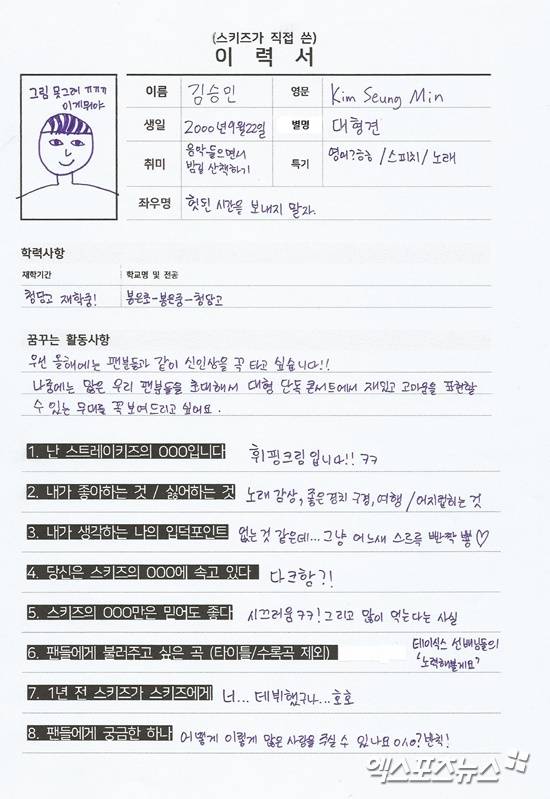 (스키즈가 직접 쓴)
이 력 서
그림 못그려 ㄲㄲㄲ
이게뭐야
이름 김승민 영문 Kim Seung Min
생일 2000년 9월 22일 별명 대형견
취미 음악들으면서 밤길 산책하기 특기 영어?ㅎㅎ / 스피치 / 노래
좌우명 헛된 시간을 보내지 말자.
학력사항
재학기간 학교명 및 전공
청담고 재학중! 봉은초-봉은중-청담고
꿈꾸는 활동사항
우선 올해에는 팬분들과 같이 신인상을 꼭 타고 싶습니다!!
나중에는 많은 우리 팬분들을 초대해서 대형 단독 콘서트에서 재밌고 고마움을 표현할
수 있는 무대를 꼭 보여드리고 싶어요.
1. 난 스트레이키즈의 OOO입니다 휘핑크림 입니다!! ㅋㅋ
2. 내가 좋아하는 것 / 싫어하는 것 노래 감상, 좋은 경치 구경, 여행 / 어지럽히는 것
3. 내가 생각하는 나의 입덕포인트 없는 것 같은데... 그냥 어느새 스르륵 빤짝 뿅♡
4. 당신은 스키즈의 OOO에 속고 있다 다크함?!
5. 스키즈의 OOO만은 믿어도 좋다 시끄러움 ㅋㅋ! 그리고 많이 먹는다는 사실
6. 팬들에게 불러주고 싶은 곡 (타이틀/수록곡 제외) 데이식스 선배님들의
'노력해볼게요'
7. 1년 전 스키즈가 스키즈에게 너... 데뷔했구나... 호호
8. 팬들에게 궁금한 하나 어떻게 이렇게 많은 사랑을 주실 수 있나요 0ㅅ0?
엑스포츠뉴스